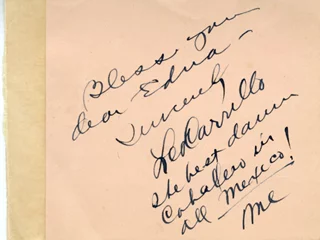 Bless you
dear Edna -
Sincerely
Leo Carrillo
The best damn
Caballero in
all Mexico!
me